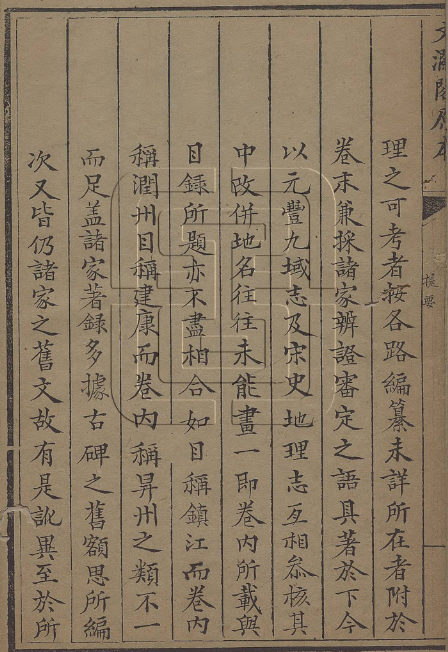 文瀾閣
提要
理之可考者按各路編纂未詳所在者附於
卷末兼採諸家辨證審定之語具著於下今
以元豐九域志及宋史地理志互相叅核其
中改併地名往往未能畫一即卷内所載與
目録所題亦不盡相合如目稱鎮江而卷内
稱潤州目稱建康而卷内稱昇州之類不一
而足盖諸家著録多據古碑之舊額思所編
次又皆仍諸家之舊文故有是訛異至於所